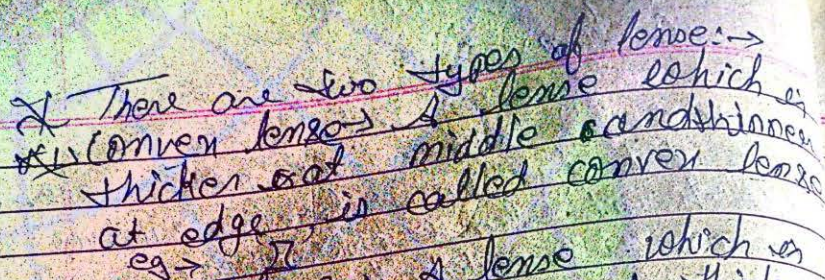 There are two types of lense:→
(1) Conven lense→ A lense which is
thicker at middle and thinner
at edge is called conven lense
eg→
A lense which is